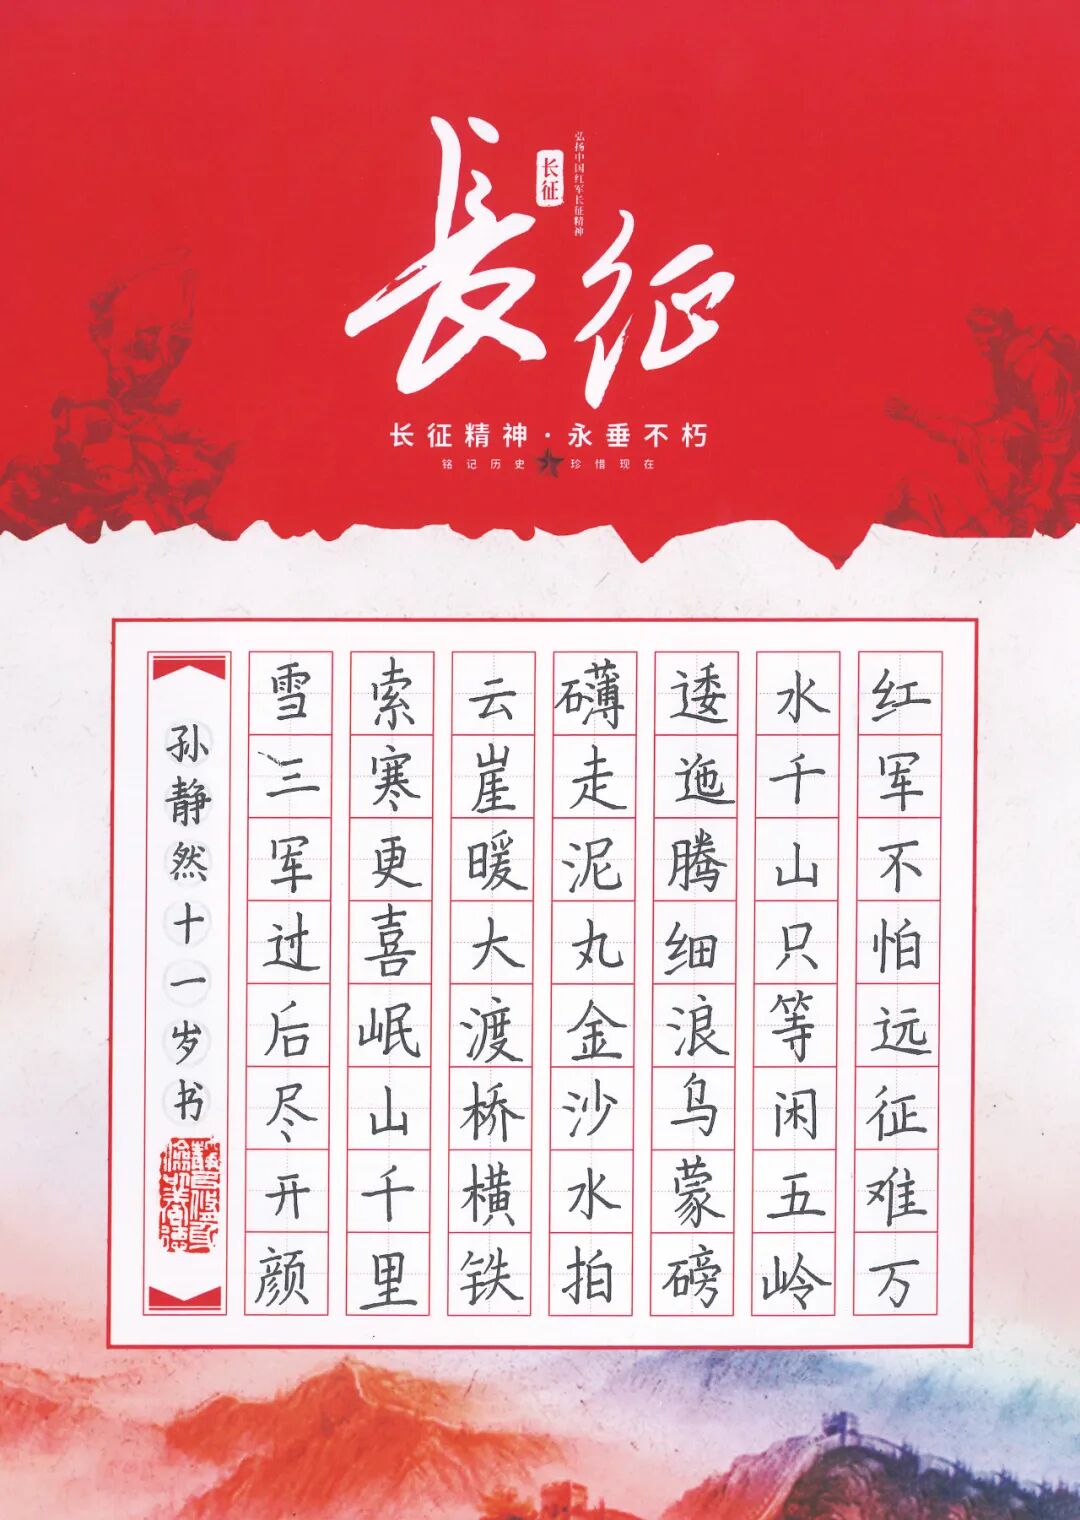 長征
长征
弘扬中国红军长征精神
长征精神·永垂不朽
铭记历史 珍惜现在
红军不怕远征难万
水千山只等闲五岭
逶迤腾细浪乌蒙磅
礴走泥丸金沙水拍
云崖暖大渡桥横铁
索寒更喜岷山千里
雪三军过后尽开颜
孙静然十一岁书